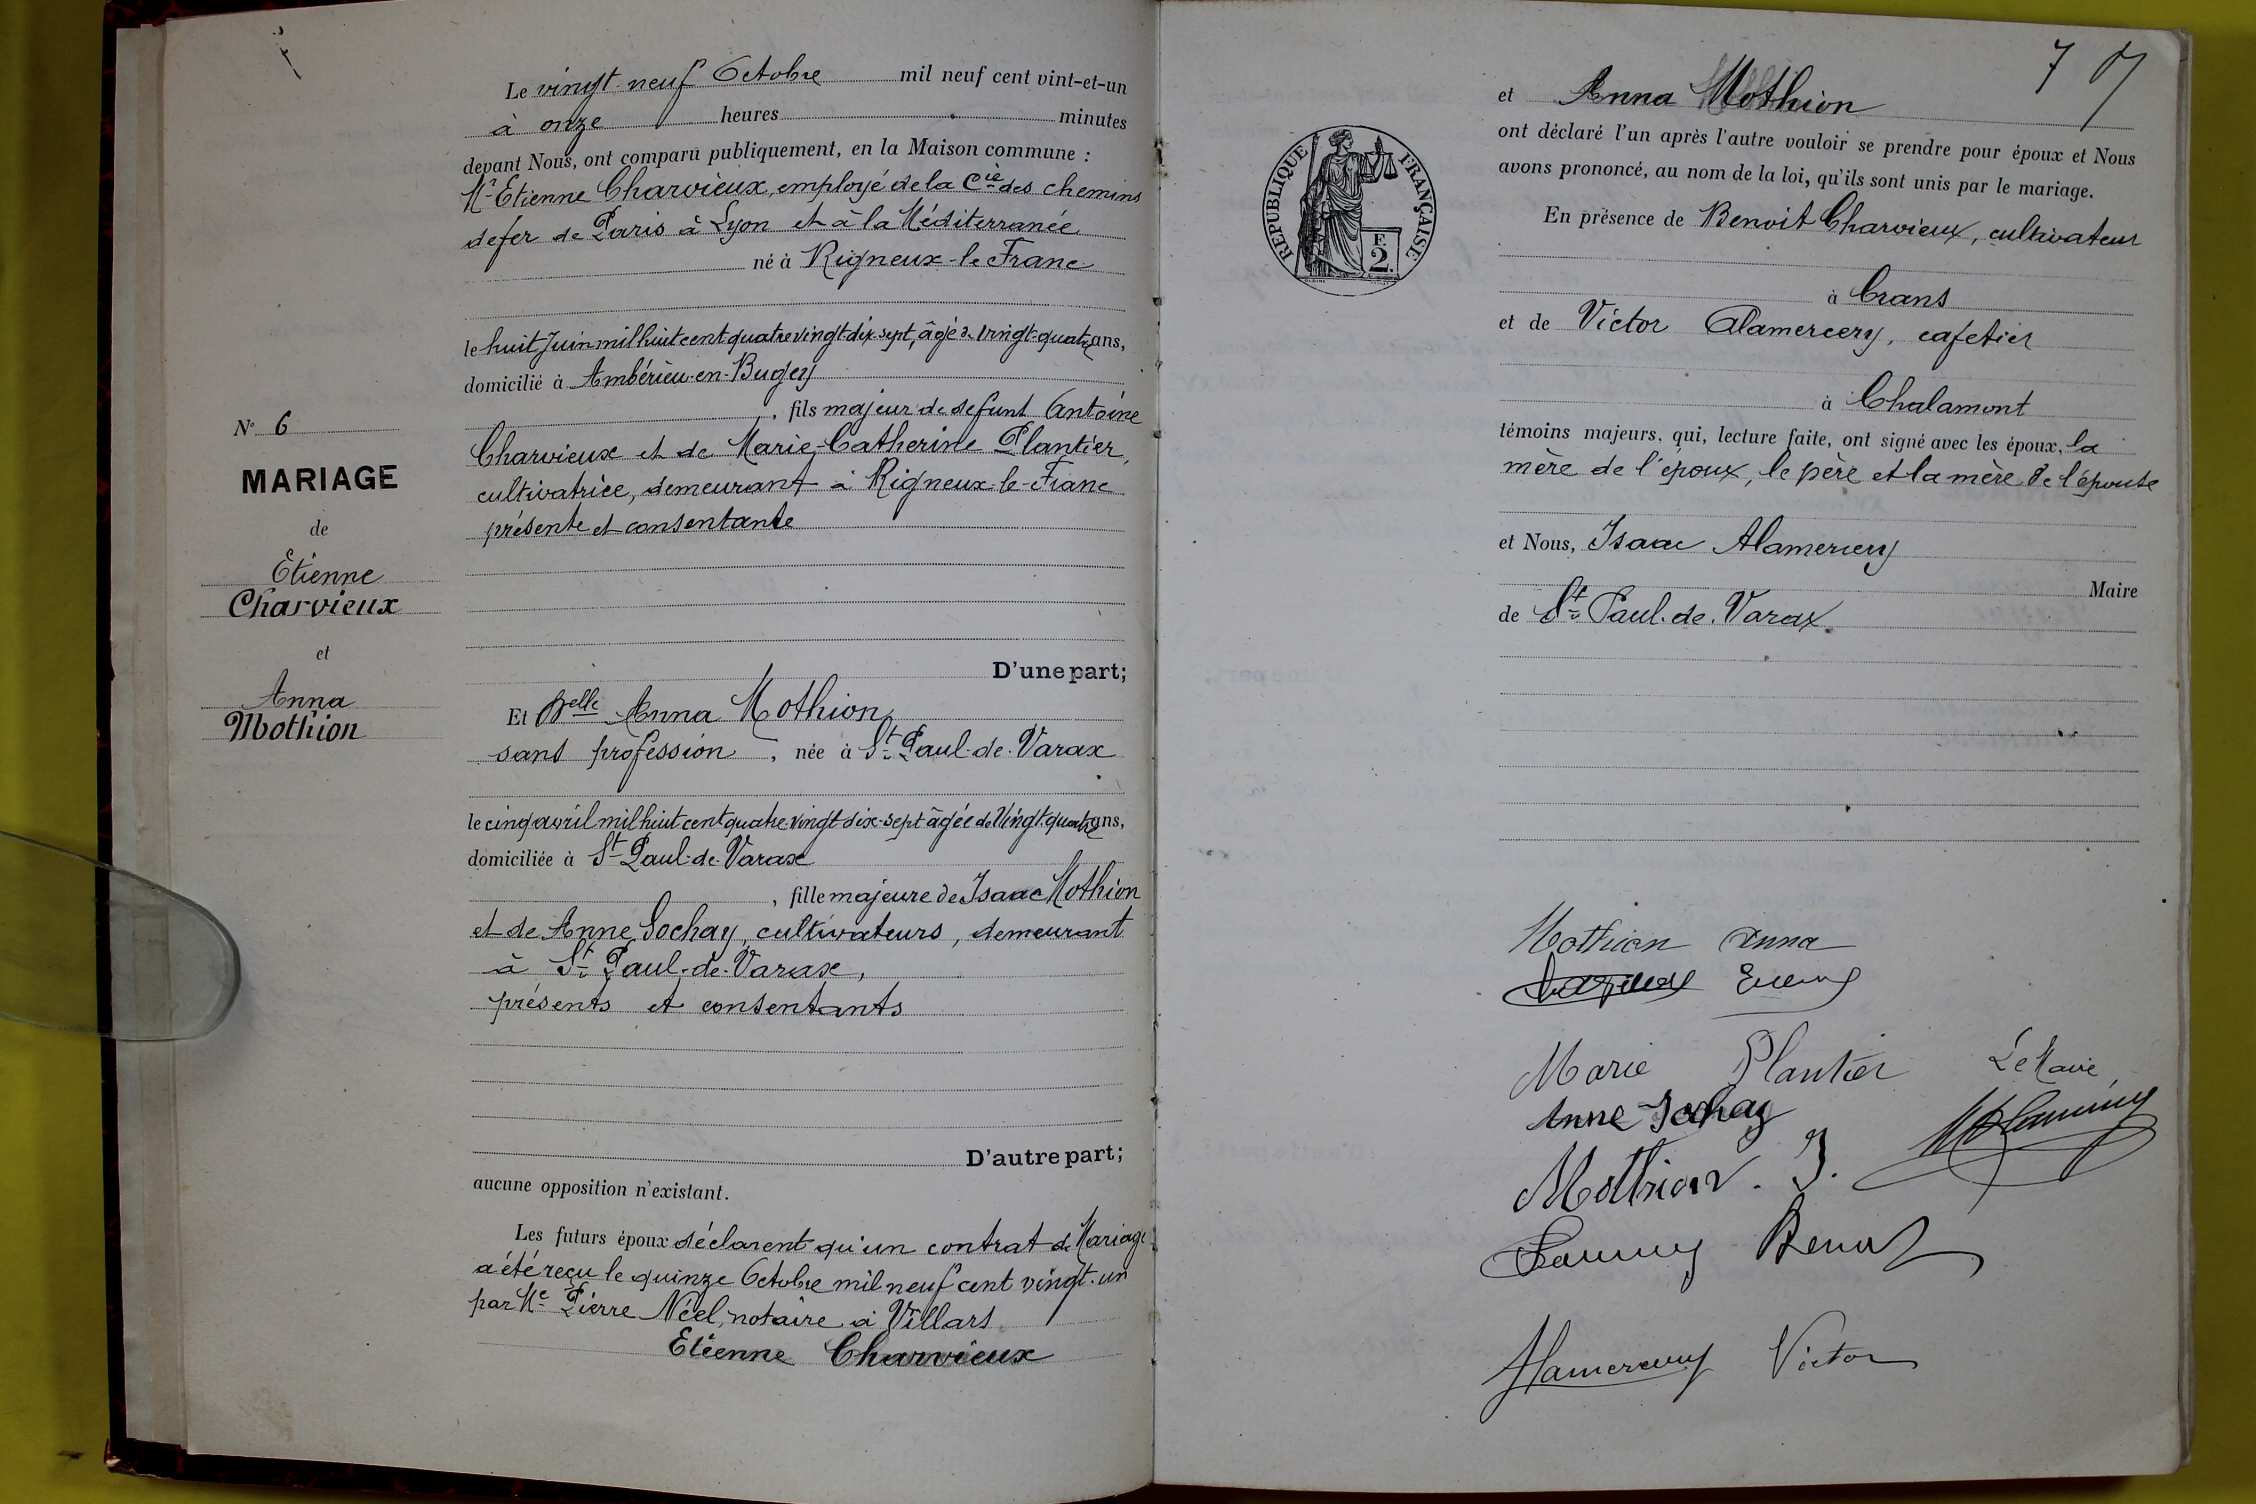 Le vingt-neuf Octobre mil neuf cent vint-et-un
à onze heures minutes
devant Nous, ont comparu publiquement, en la Maison commune :
Mr Etienne Charvieux, employé de la Cie des chemins
de fer de Paris à Lyon et à la Méditerranée
né à Rigneux-le-Franc
le huit Juin mil huit cent quatre vingt-dix-sept, âgé de vingt-quatre ans,
domicilié à Ambérieu-en-Bugey
, fils majeur de defunt Antoine
Charvieux et de Marie-Catherine Plantier,
cultivatrice, demeurant à Rigneux-le-Franc
présente et consentante
N° 6
MARIAGE
de
Etienne
Charvieux
et
Anna
Mothion
D'une part;
Et Delle Anna Mothion
sans profession, née à St Paul-de-Varax
le cinq avril mil huit cent quatre-vingt-dix-sept âgée de vingt-quatre ans,
domiciliée à St Paul-de-Varax
, fille majeure de Isaac Mothion
et de Anne Sochay, cultivateurs, demeurant
à St Paul-de-Varax,
présents et consentants
D'autre part;
aucune opposition n'existant.
Les futurs époux déclarent qu'un contrat de Mariage
a été reçu le quinze Octobre mil neuf cent vingt-un
par Me Pierre Néel, notaire à Villars
Etienne Charvieux
7
et Anna Mothion
ont déclaré l'un après l'autre vouloir se prendre pour époux et Nous
avons prononcé, au nom de la loi, qu'ils sont unis par le mariage.
RÉPUBLIQUE FRANÇAISE
E
2.
En présence de Benoit Charvieux, cultivateur
à Crans
et de Victor Alamercery, cafetier
à Chalamont
témoins majeurs, qui, lecture faite, ont signé avec les époux, la
mère de l'époux, le père et la mère de l'épouse
et Nous, Isaac Alamercery
Maire
de St Paul-de-Varax
Mothion Anna
Marie Plantier
Le Maire,
Anne Sochay
Mothion. I.
Benoit
Alamercery Victor